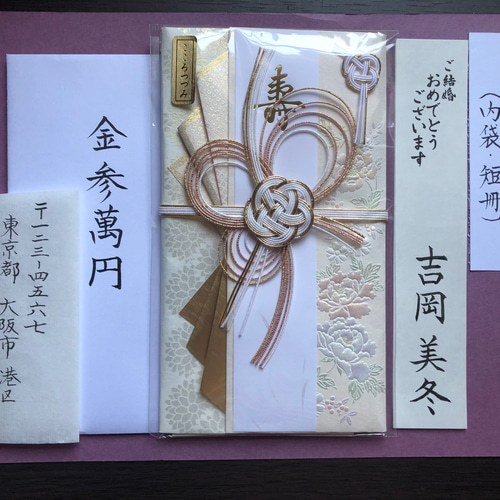 (内袋・短冊)
ご結婚
おめでとう
ございます
吉岡美冬
こころづつみ
寿
金参萬円
〒一二三-四五六七
東京都 大阪市 港区